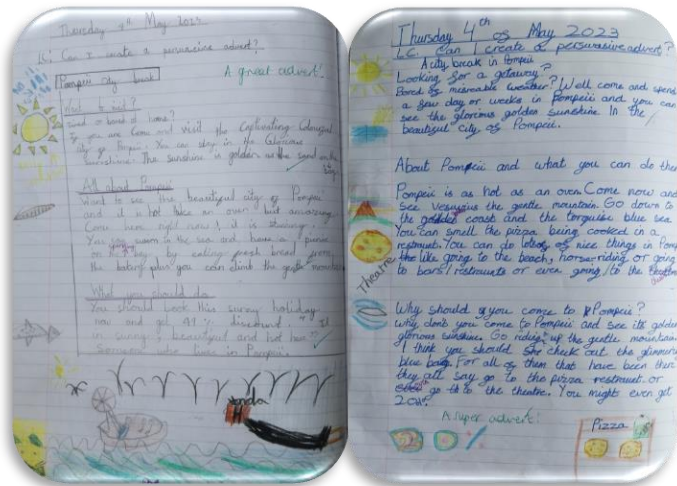 Thursday 4th May 2023
LC: Can I create a persuasive advert?
Pompeii city break
A great advert!
Want to visit?
bored of home?
If you are come and visit the captivating
city of Pompeii. You can stay in the Glorious
Sunshine. The sunshine is golden as the sand on the
All about Pompeii
Want to see the beautiful city of Pompeii
and it is hot like an oven but amazing.
Come here right now! it is
You swim in the sea and have a picnic
on the by eating fresh bread from
the bakery plus you can climb the gentle mountain
What you should do
You should book this sunny holiday
now and get 41% discount. "It
is sunny, beautiful and hot here"
Someone who lives in Pompeii
Thursday 4th of May 2023
LC: Can I create a persuasive advert?
A city break in Pompeii
Looking for a getaway?
Bored of misreable weather? Well come and spend
a few day or weeks in Pompeii and you can
see the glorious golden sunshine. In the
beautiful city of Pompeii.
About Pompeii and what you can do ther
Pompeii is as hot as an oven. Come now and
see Vesuvious the gentle mountain. Go down to
the golden coast and the torquise blue sea.
You can smell the pizza being cooked in a
restraunt. You can do lots of nice things in Pomp
like going to the beach, horse riding or going
to bars/restraunts or even going to the
Theatre
Why should you come to Pompeii?
Why don't you come to Pompeii and see it's golden
glorious sunshine. Go riding up the gentle mountain
I think you should check out the glimmering
blue For all of them that have been there
they all say go to the pizza restraunt. or
go to the theatre. You mights even get
A super advert!
Pizza